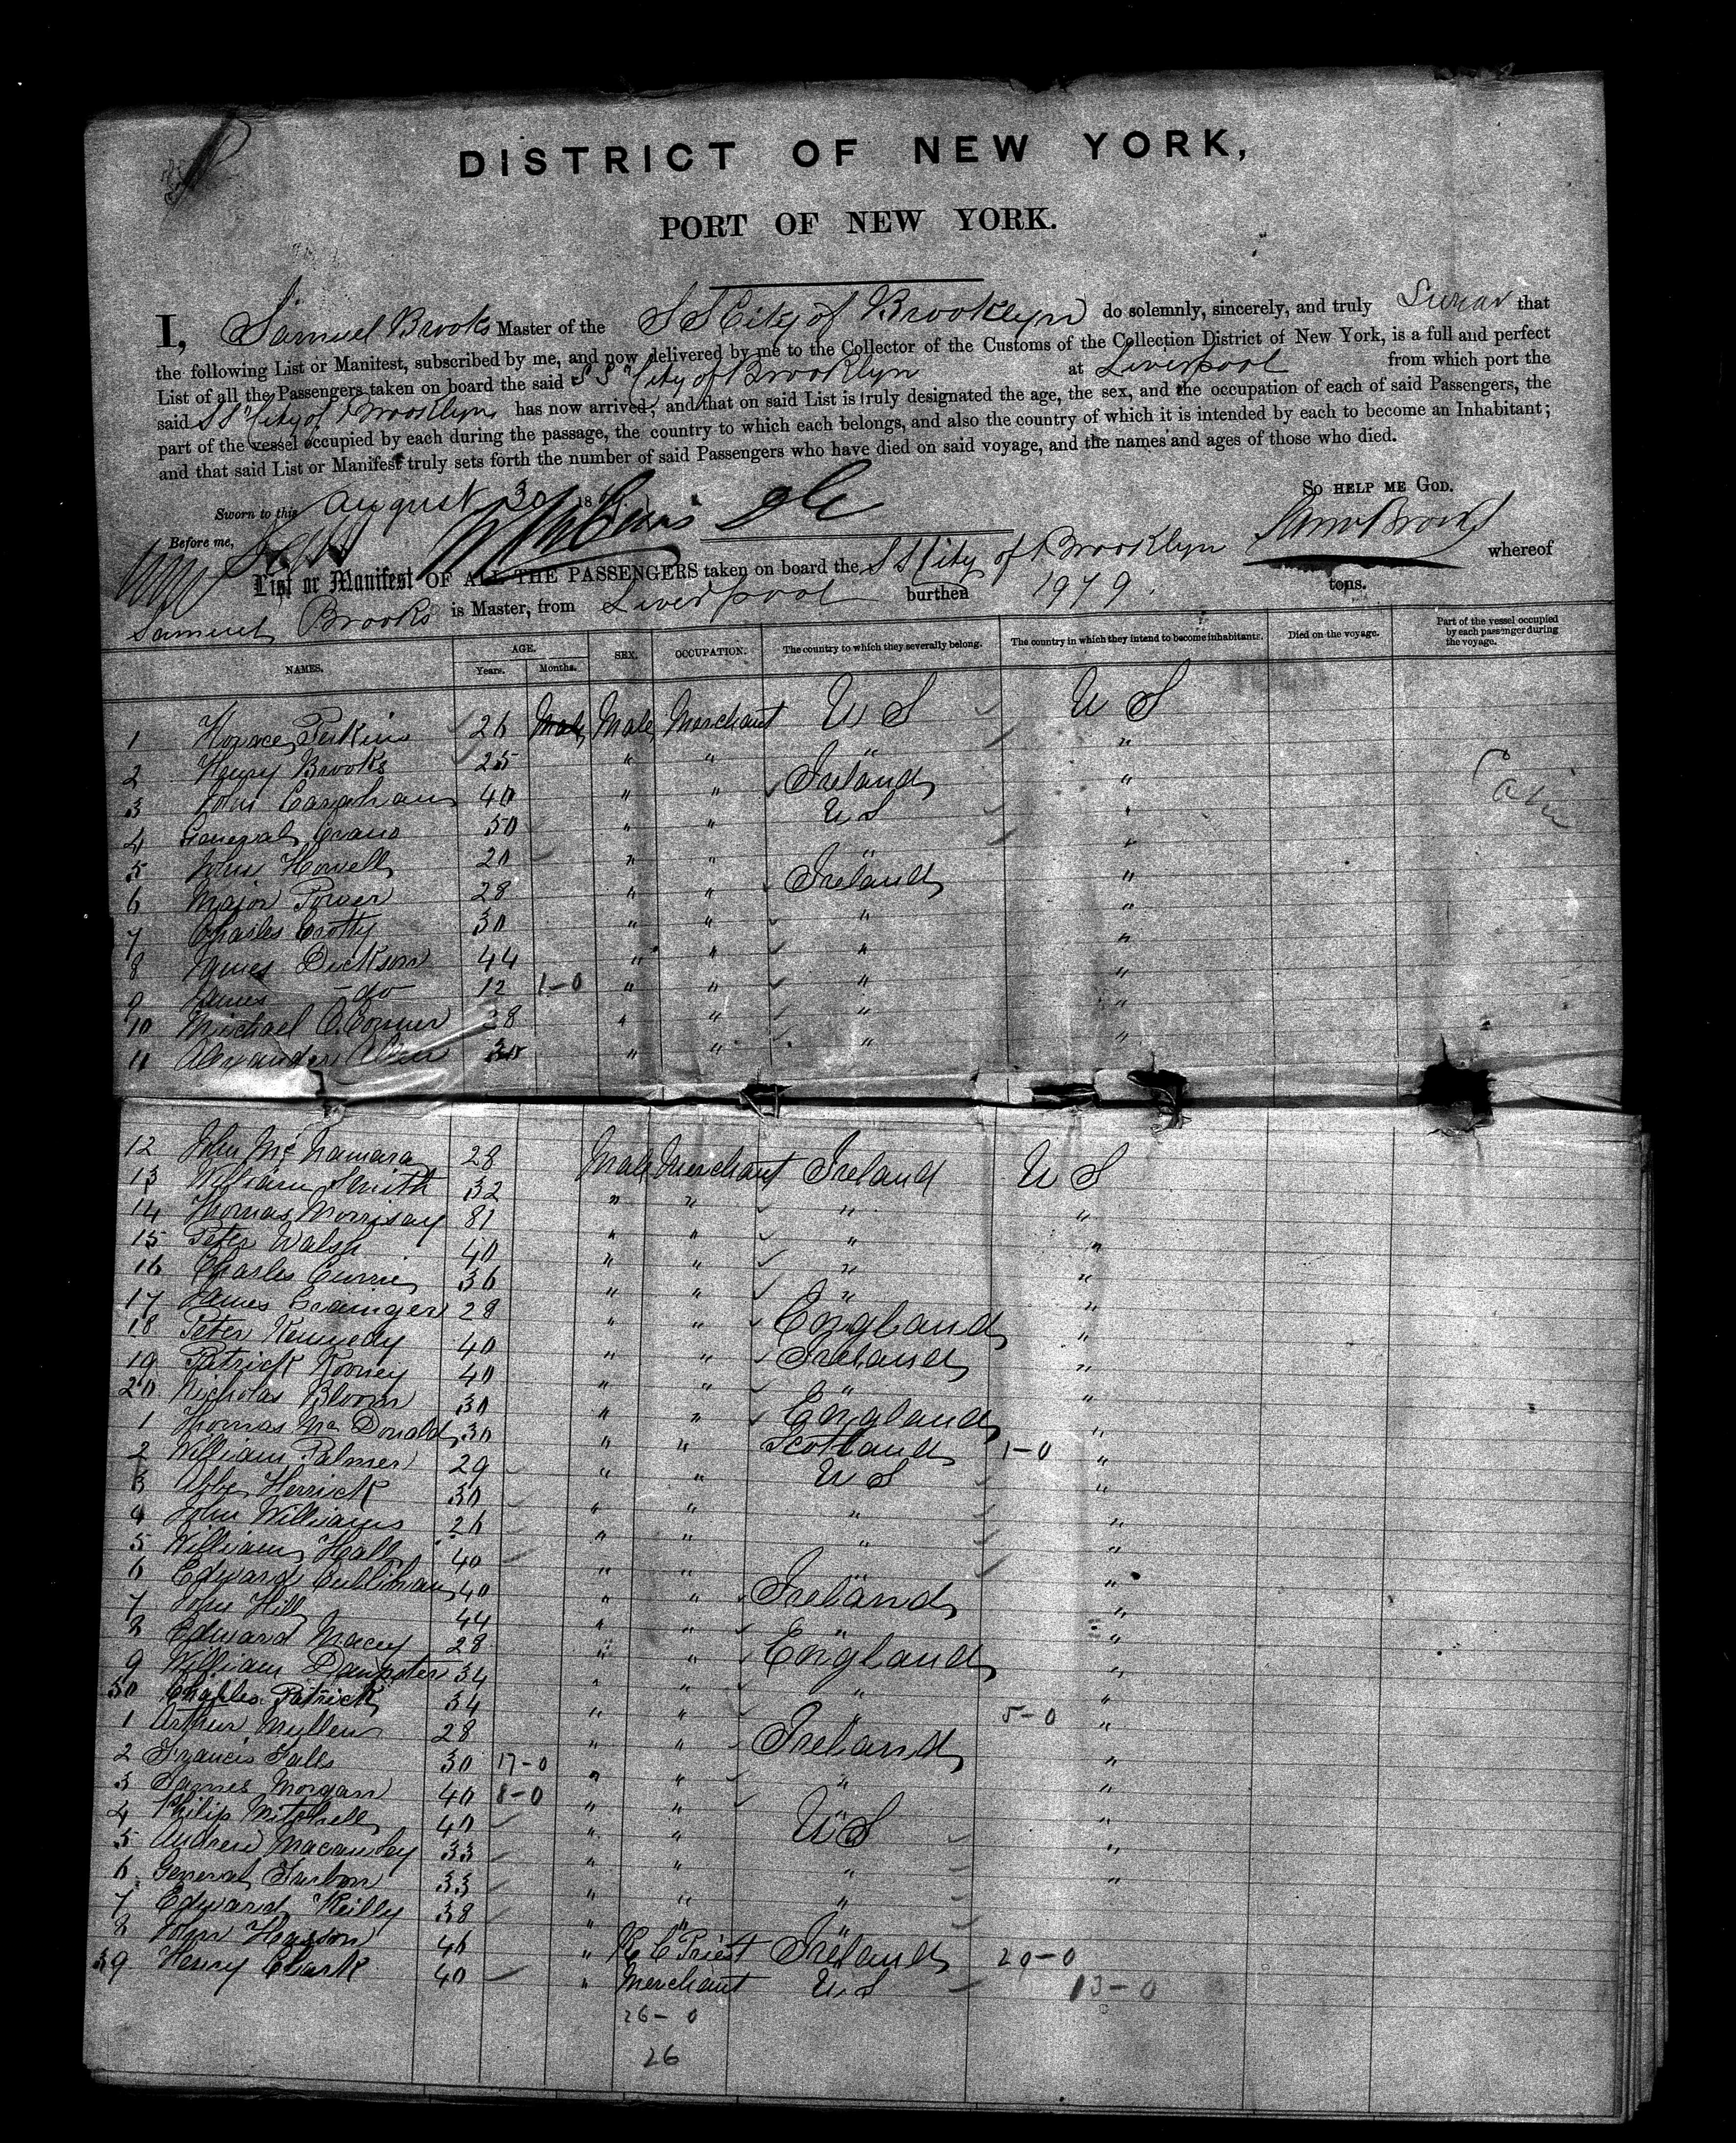 DISTRICT OF NEW YORK,
PORT OF NEW YORK.
I, Samuel Brooks Master of the SS City of Brooklyn do solemnly, sincerely, and truly Swear that
the following List or Manifest, subscribed by me, and now delivered by me to the Collector of the Customs of the Collection District of New York, is a full and perfect
List of all the Passengers taken on board the said SS "City of Brooklyn at Liverpool from which port the
said SS "City of Brooklyn has now arrived; and that on said List is truly designated the age, the sex, and the occupation of each of said Passengers, the
part of the vessel occupied by each during the passage, the country to which each belongs, and also the country of which it is intended by each to become an Inhabitant;
and that said List or Manifest truly sets forth the number of said Passengers who have died on said voyage, and the names and ages of those who died.
So help me God.
Sworn to this August 30 18
Before me, Saml Brooks
List or Manifest OF ALL THE PASSENGERS taken on board the SS City of Brooklyn whereof
Samuel Brooks is Master, from Liverpool burthen 1979. tons.
NAMES. AGE. Years. Months. SEX. OCCUPATION. The country to which they severally belong. The country in which they intend to become inhabitants. Died on the voyage. Part of the vessel occupied by each passenger during the voyage.
1 Horace Perkins 26 Male Male Merchant U S U S
2 Henry Brooks 25 " " " "
3 John 40 " " Ireland "
4 General 50 " " U S "
5 John Howell 20 " " " "
6 Major Power 28 " " Ireland "
7 Charles Crotty 30 " " " "
8 James Dickson 44 " " " "
9 James -do- 12 1-0 " " " "
10 Michael O.Connor 38 " " " "
11 Alexander Allen 30 " " " "
12 John McNamara 28 Male Merchant Ireland U S
13 William Smith 32 " " " "
14 Thomas Morrisay 81 " " " "
15 Peter Walsh 40 " " " "
16 Charles Currie 36 " " " "
17 James Grainger 28 " " England "
18 Peter Kennedy 40 " " Ireland "
19 Patrick Rooney 40 " " " "
20 Nicholas Bloom 30 " " England "
1 Thomas McDonald 30 " " Scotland 1-0 "
2 William Palmer 29 " " U S "
3 Abbe Herrick 30 " " " "
4 John Williams 26 " " " "
5 William Hall 40 " " " "
6 Edward Cullinan 40 " " Ireland "
7 John Hill 44 " " " "
8 Edward Macey 28 " " England "
9 William Dempster 34 " " " "
30 Charles Patrick 34 " " " 5-0 "
1 Arthur Mullen 28 " " Ireland "
2 Francis Falls 30 17-0 " " " "
3 James Morgan 40 8-0 " " " "
4 Philip Mitchell 40 " " U S "
5 Andrew Macaulay 33 " " " "
6 General 33 " " "
7 Edward Reilly 38 " " "
8 John 46 " R C Priest Ireland 29-0
39 Henry Clark 40 " Merchant U S 13-0
26-0
26